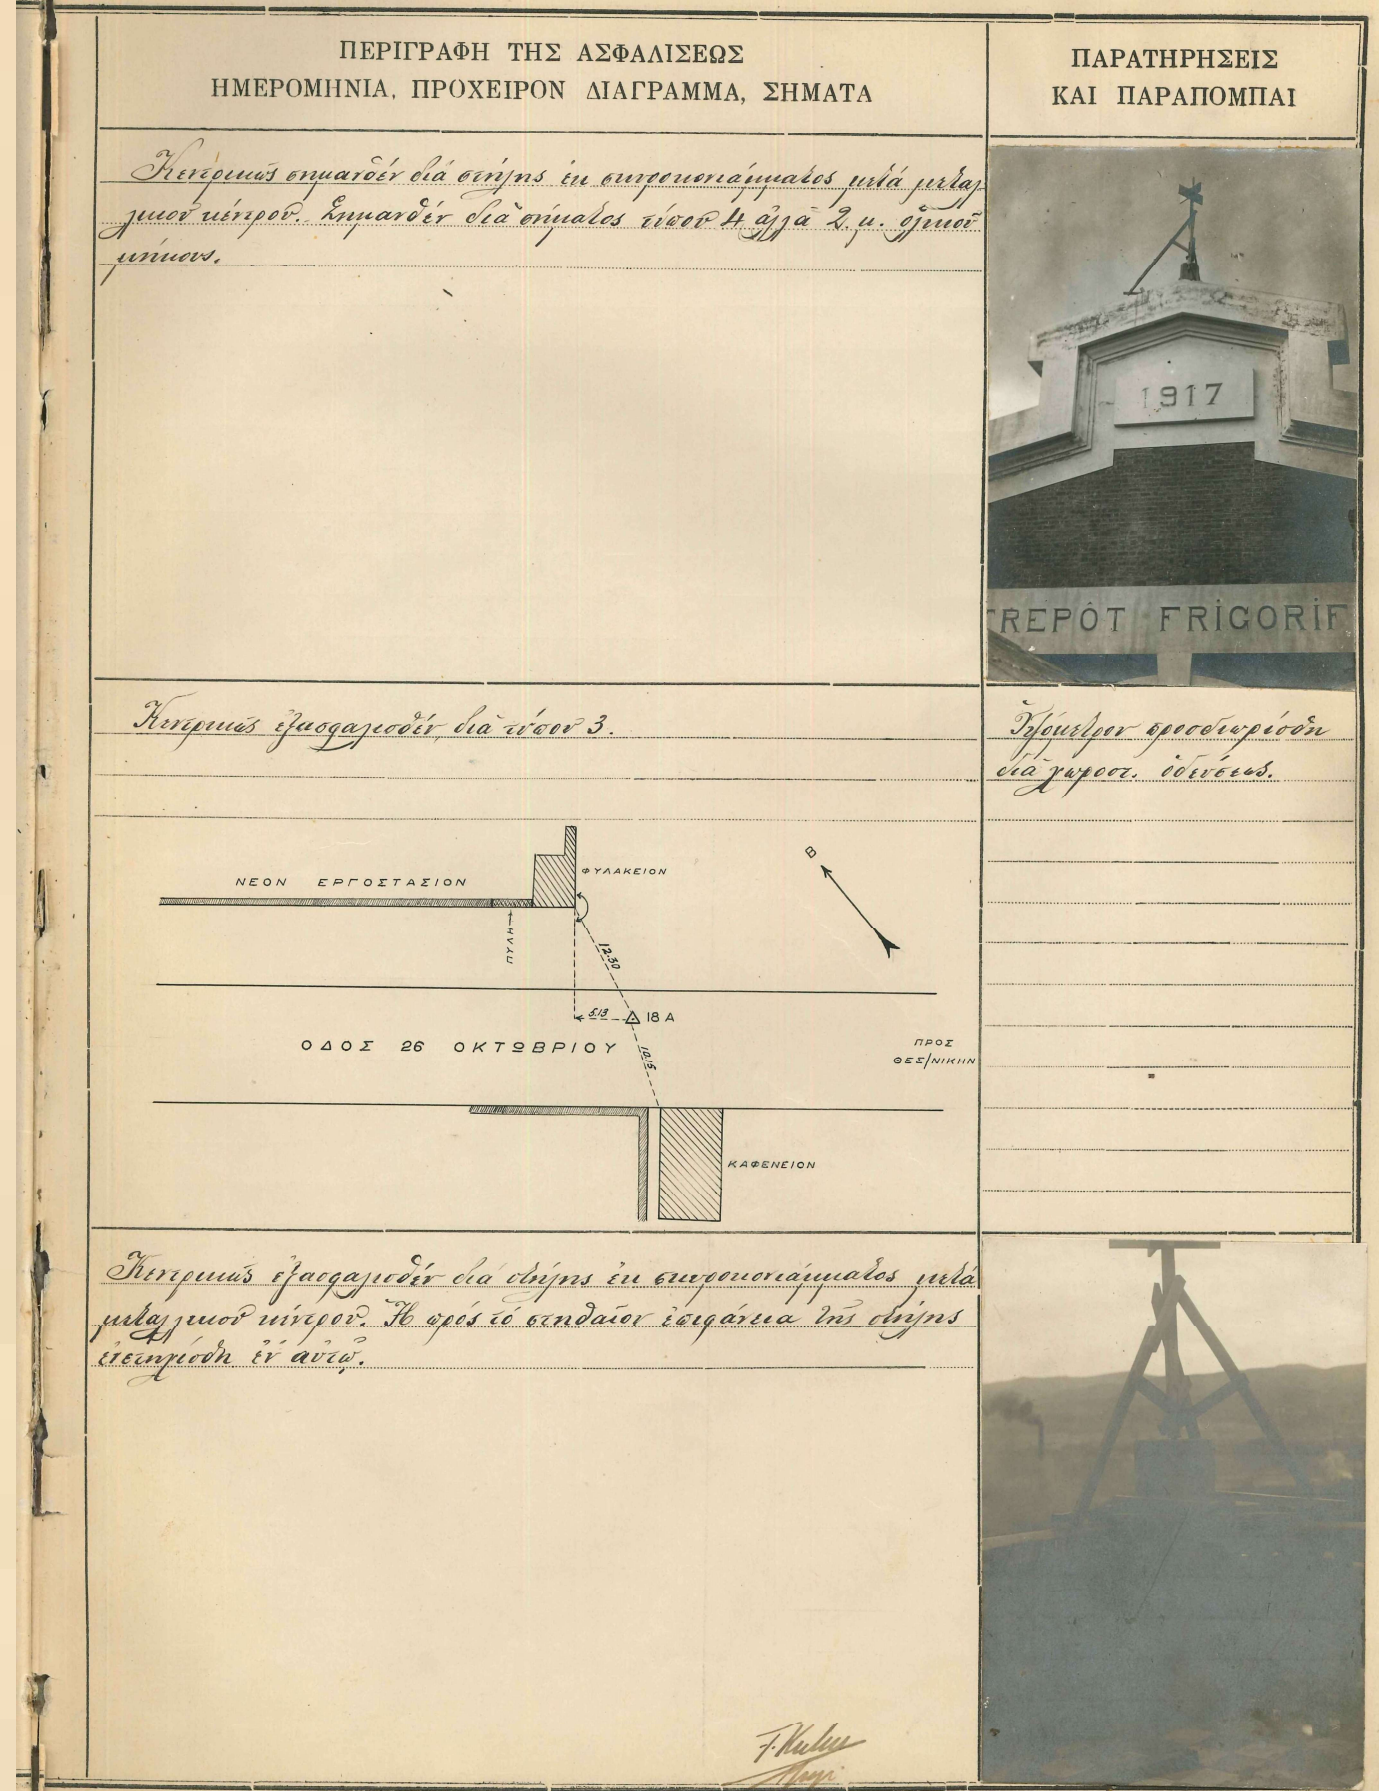 ΠΕΡΙΓΡΑΦΗ ΤΗΣ ΑΣΦΑΛΙΣΕΩΣ
ΗΜΕΡΟΜΗΝΙΑ, ΠΡΟΧΕΙΡΟΝ ΔΙΑΓΡΑΜΜΑ, ΣΗΜΑΤΑ
ΠΑΡΑΤΗΡΗΣΕΙΣ
ΚΑΙ ΠΑΡΑΠΟΜΠΑΙ
Κεντρικῶς σημανθέν διά στήλης ἐκ σκυροκονιάματος μετά μεταλ
λικοῦ κέντρου. Σημανθέν διά σήματος τύπου 4 ἀλλά 2. μ. ὁλικοῦ
μήκους.
1917
TREPÔT FRIGORIF
Κεντρικῶς ἐξασφαλισθέν διά τύπου 3.
Ὑψόμετρον προσδιωρίσθη
διά χωροστ. ὁδεύσεως.
ΝΕΟΝ ΕΡΓΟΣΤΑΣΙΟΝ
ΦΥΛΑΚΕΙΟΝ
Β
ΠΥΛΗ
12.30
5.13
18 Α
ΟΔΟΣ 26 ΟΚΤΩΒΡΙΟΥ
10.15
ΠΡΟΣ
ΘΕΣ/ΝΙΚΗΝ
ΚΑΦΕΝΕΙΟΝ
Κεντρικῶς ἐξασφαλισθέν διά στήλης ἐκ σκυροκονιάματος μετά
μεταλλικοῦ κέντρου. Ἡ πρός τό στηθαῖον ἐπιφάνεια τῆς στήλης
ἐν αὐτῷ.